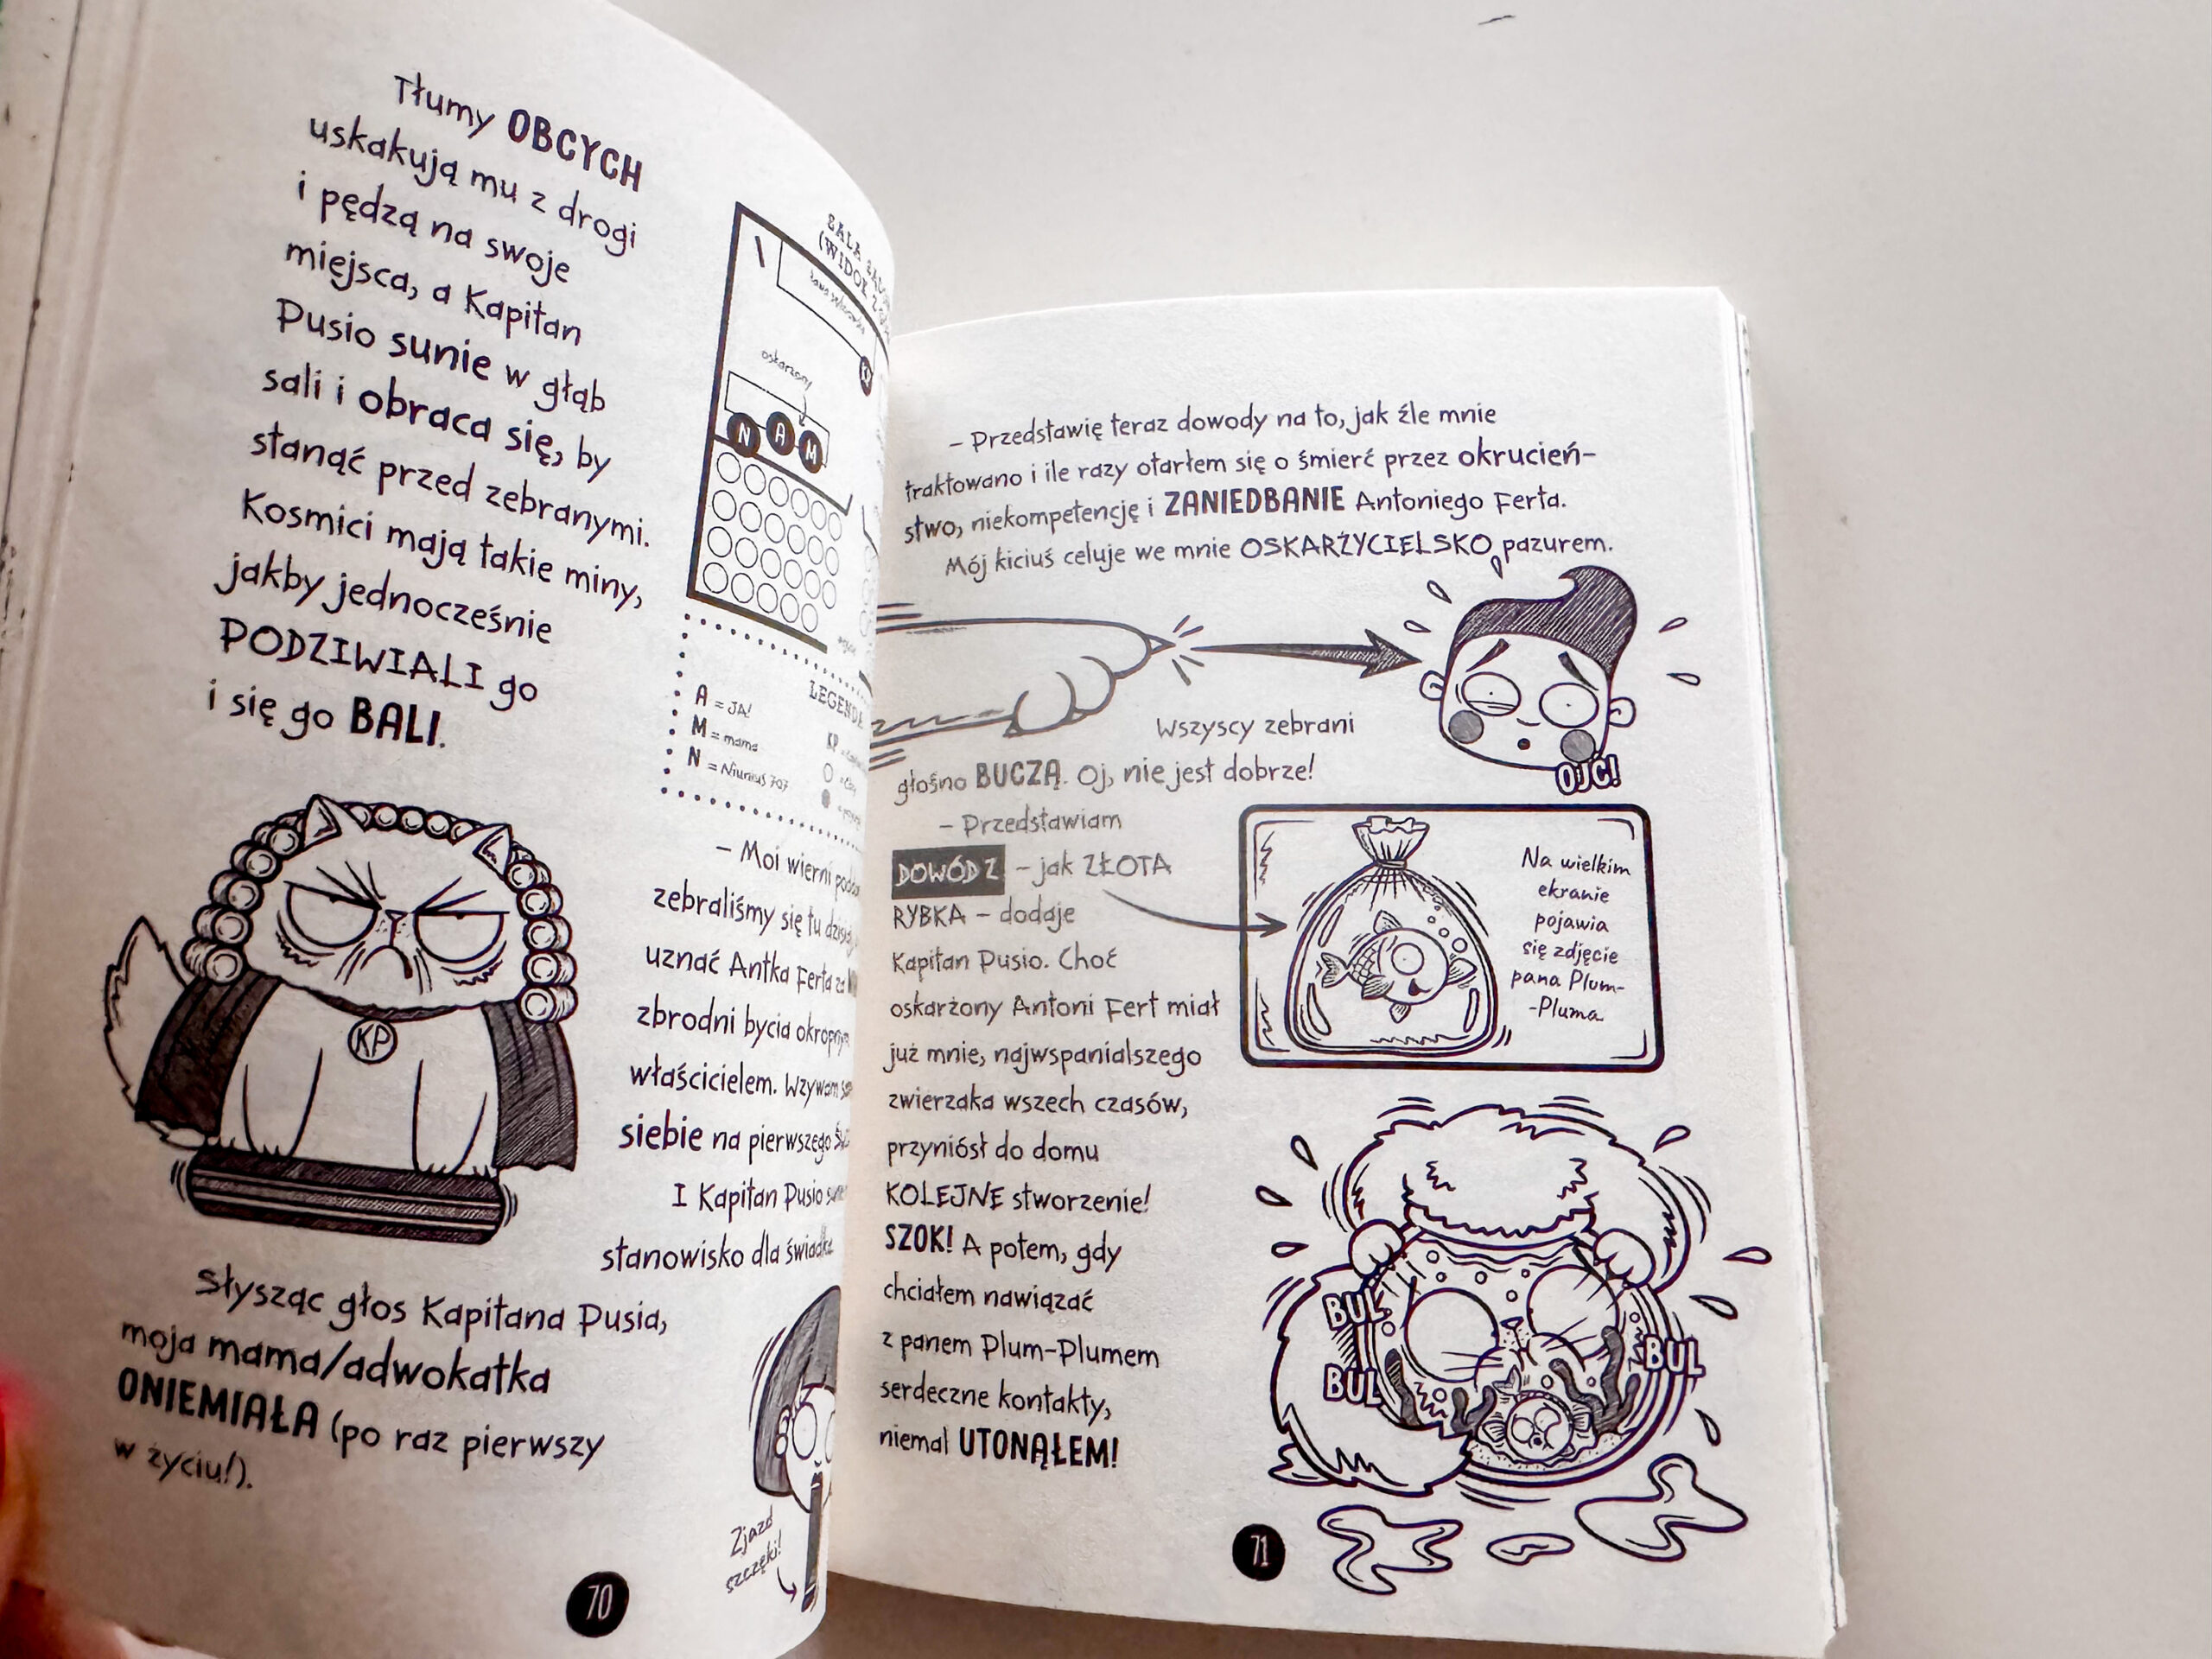 Tłumy OBCYCH
uskakują mu z drogi
i pędzą na swoje
miejsca, a Kapitan
Pusio sunie w głąb
sali i obraca się, by
stanąć przed zebranymi.
Kosmici mają takie miny,
jakby jednocześnie
PODZIWIALI go
i się go BALI.
KP
Słysząc głos Kapitana Pusia,
moja mama/adwokatka
ONIEMIAŁA (po raz pierwszy
w życiu!).
SALA
(WIDOK Z
oskarżony
N A M
LEGENDA
A = JA!
M = mama
N = Niuniuś 707
KP
– Moi wierni
zebraliśmy się tu
uznać Antka Ferta za
zbrodni bycia
właścicielem. Wzywam
siebie na pierwszego
I Kapitan Pusio
stanowisko dla
Zjazd
szczęki!
70
– Przedstawię teraz dowody na to, jak źle mnie
traktowano i ile razy otarłem się o śmierć przez okrucień-
stwo, niekompetencję i ZANIEDBANIE Antoniego Ferta.
Mój kiciuś celuje we mnie OSKARŻYCIELSKO pazurem.
OJĆ!
Wszyscy zebrani
głośno BUCZĄ. Oj, nie jest dobrze!
– Przedstawiam
DOWÓD Z – jak ZŁOTA
RYBKA – dodaje
Kapitan Pusio. Choć
oskarżony Antoni Fert miał
już mnie, najwspanialszego
zwierzaka wszech czasów,
przyniósł do domu
KOLEJNE stworzenie!
SZOK! A potem, gdy
chciałem nawiązać
z panem Plum-Plumem
serdeczne kontakty,
niemal UTONĄŁEM!
Na wielkim
ekranie
pojawia
się zdjęcie
pana Plum-
-Pluma
BUL
BUL
BUL
71